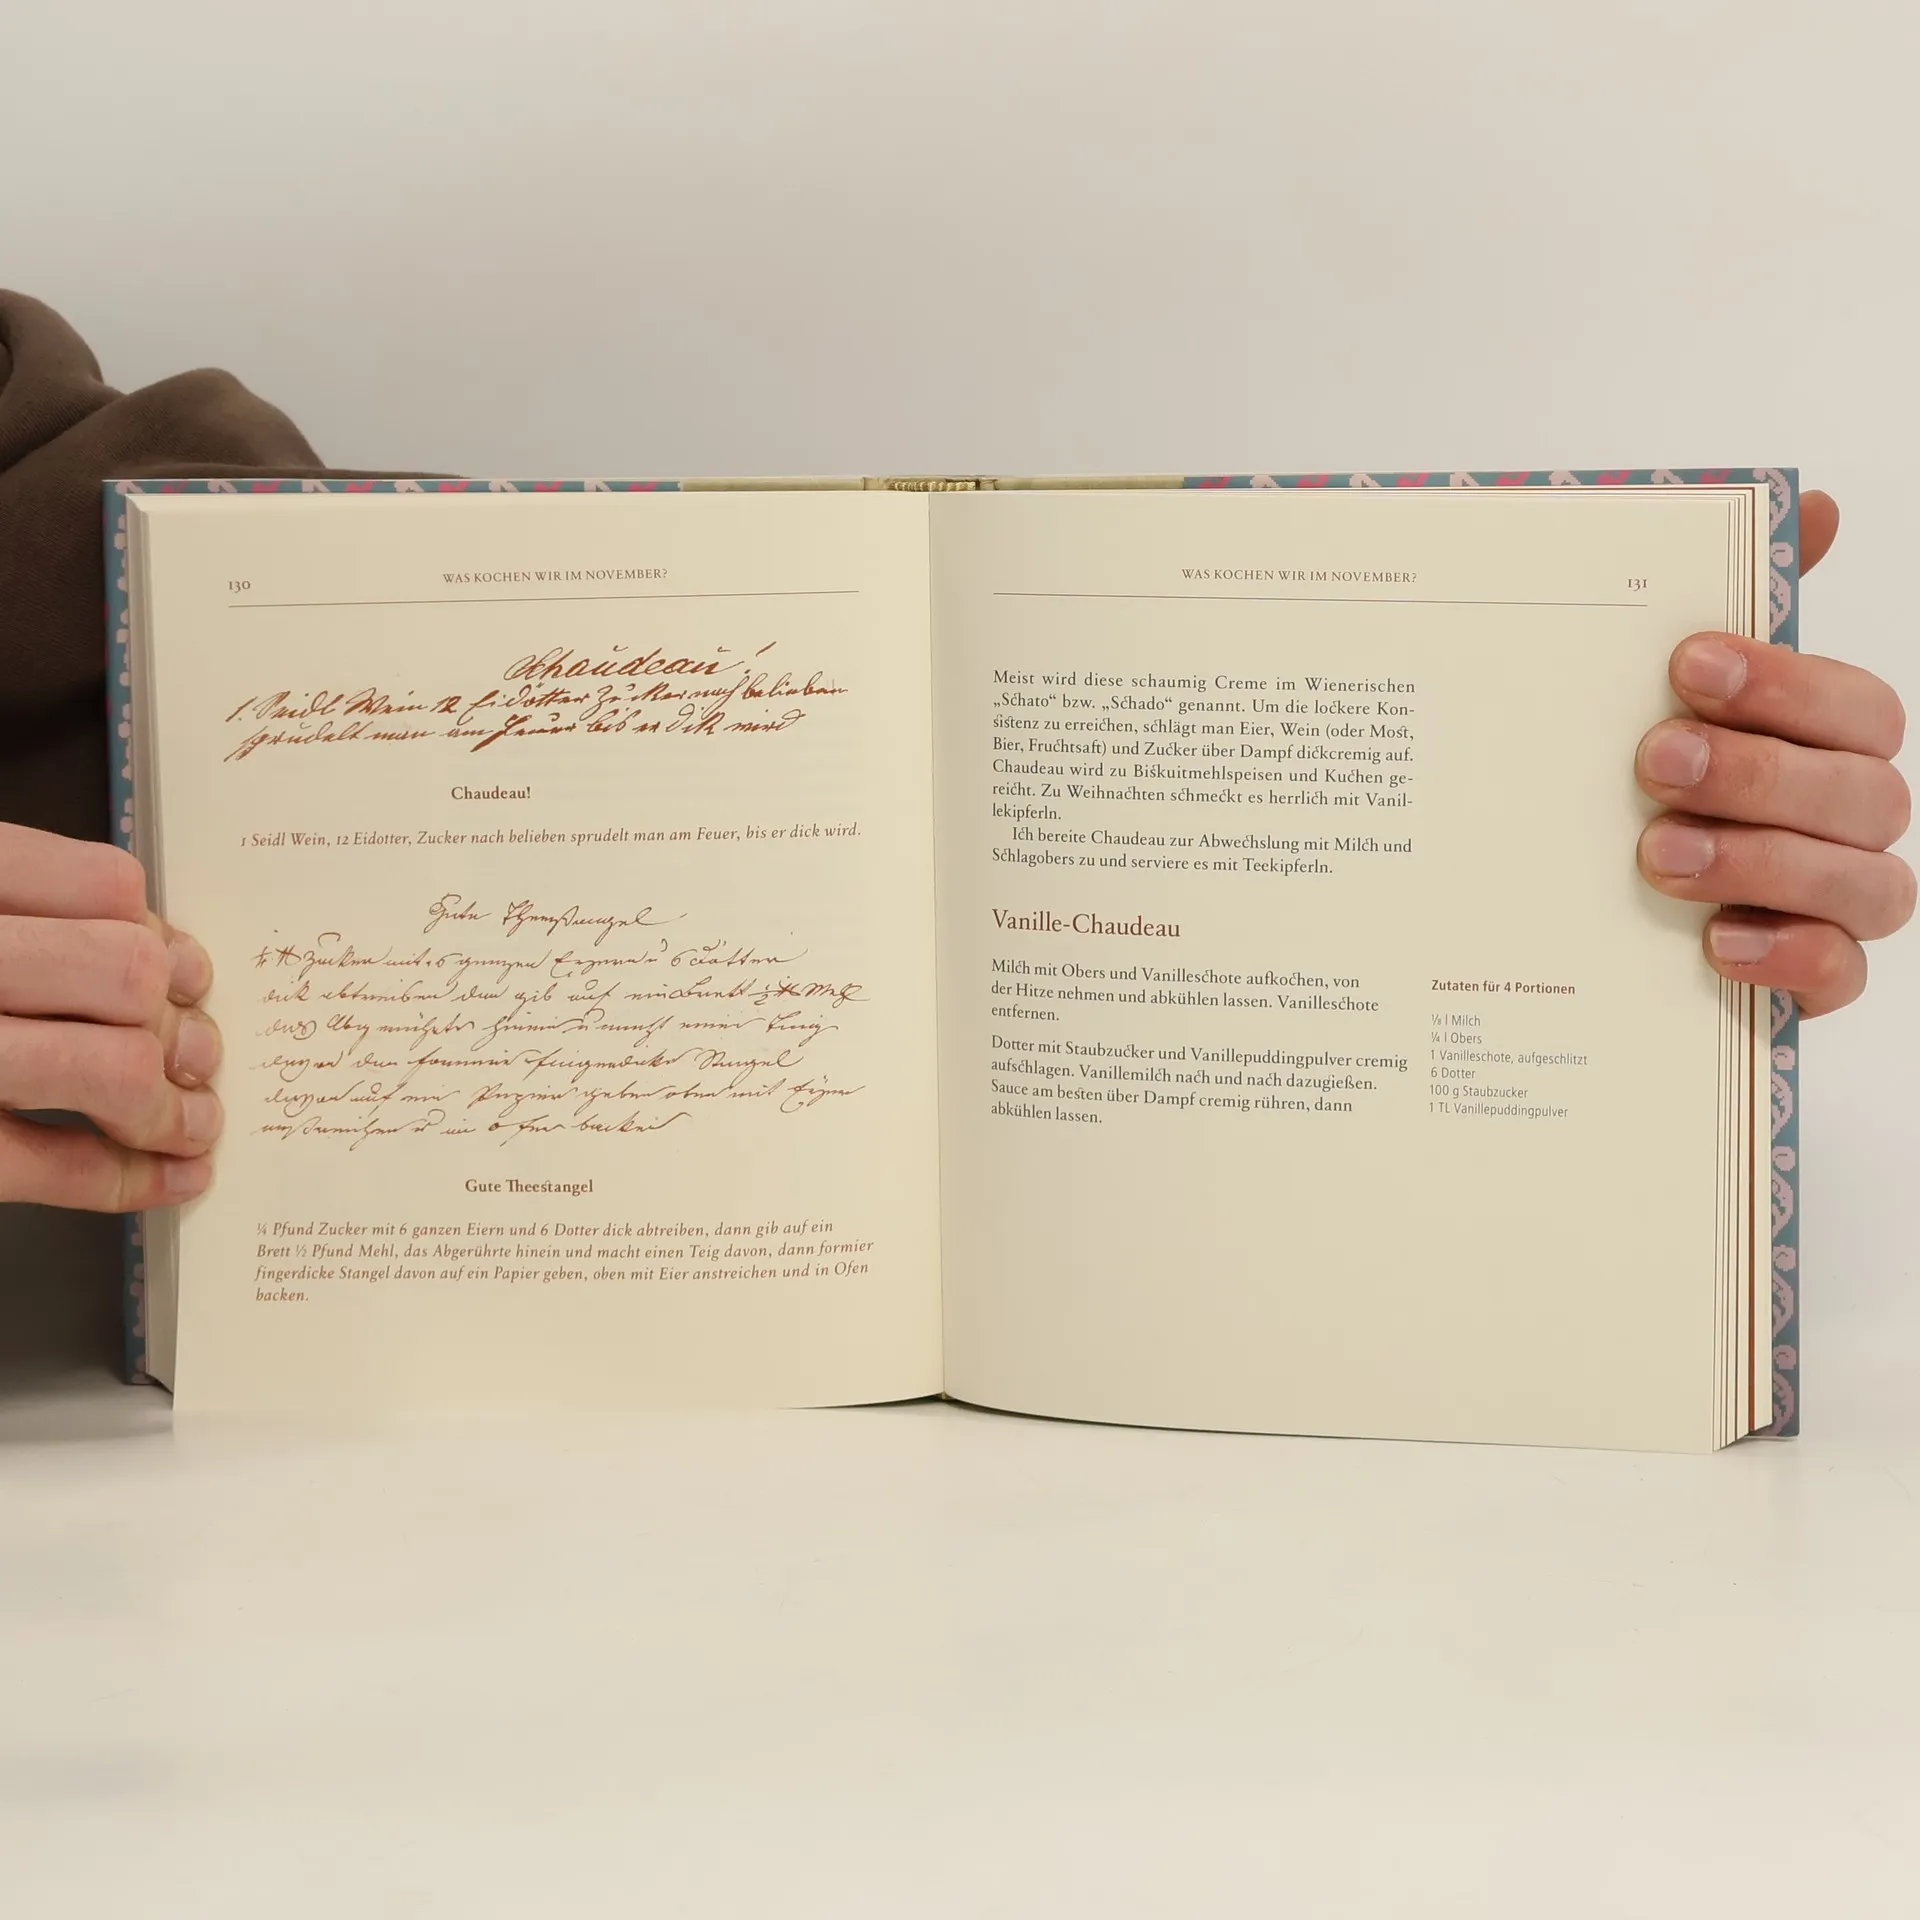 130
WAS KOCHEN WIR IM NOVEMBER?
Chaudeau!
1. Seidl Wein 12 Eidotter Zucker nach belieben
sprudelt man am Feuer bis er dick wird
Chaudeau!
1 Seidl Wein, 12 Eidotter, Zucker nach belieben sprudelt man am Feuer, bis er dick wird.
Gute Theestangel
¼ ℔ Zucker mit 6 ganzen Eyern u 6 Dotter
dick abtreiben dan gib auf ein Brett ½ ℔ Mehl
das Abgerührte hinein u macht einen Teig
davon dan formir fingerdicke Stangel
davon auf ein Papier geben oben mit Eyer
anstreichen u in Ofen backen
Gute Theestangel
¼ Pfund Zucker mit 6 ganzen Eiern und 6 Dotter dick abtreiben, dann gib auf ein
Brett ½ Pfund Mehl, das Abgerührte hinein und macht einen Teig davon, dann formier
fingerdicke Stangel davon auf ein Papier geben, oben mit Eier anstreichen und in Ofen
backen.
WAS KOCHEN WIR IM NOVEMBER?
131
Meist wird diese schaumig Creme im Wienerischen
„Schato“ bzw. „Schado“ genannt. Um die lockere Kon-
sistenz zu erreichen, schlägt man Eier, Wein (oder Most,
Bier, Fruchtsaft) und Zucker über Dampf dickcremig auf.
Chaudeau wird zu Biskuitmehlspeisen und Kuchen ge-
reicht. Zu Weihnachten schmeckt es herrlich mit Vanil-
lekipferln.
Ich bereite Chaudeau zur Abwechslung mit Milch und
Schlagobers zu und serviere es mit Teekipferln.
Vanille-Chaudeau
Milch mit Obers und Vanilleschote aufkochen, von
der Hitze nehmen und abkühlen lassen. Vanilleschote
entfernen.
Dotter mit Staubzucker und Vanillepuddingpulver cremig
aufschlagen. Vanillemilch nach und nach dazugießen.
Sauce am besten über Dampf cremig rühren, dann
abkühlen lassen.
Zutaten für 4 Portionen
⅛ l Milch
¼ l Obers
1 Vanilleschote, aufgeschlitzt
6 Dotter
100 g Staubzucker
1 TL Vanillepuddingpulver